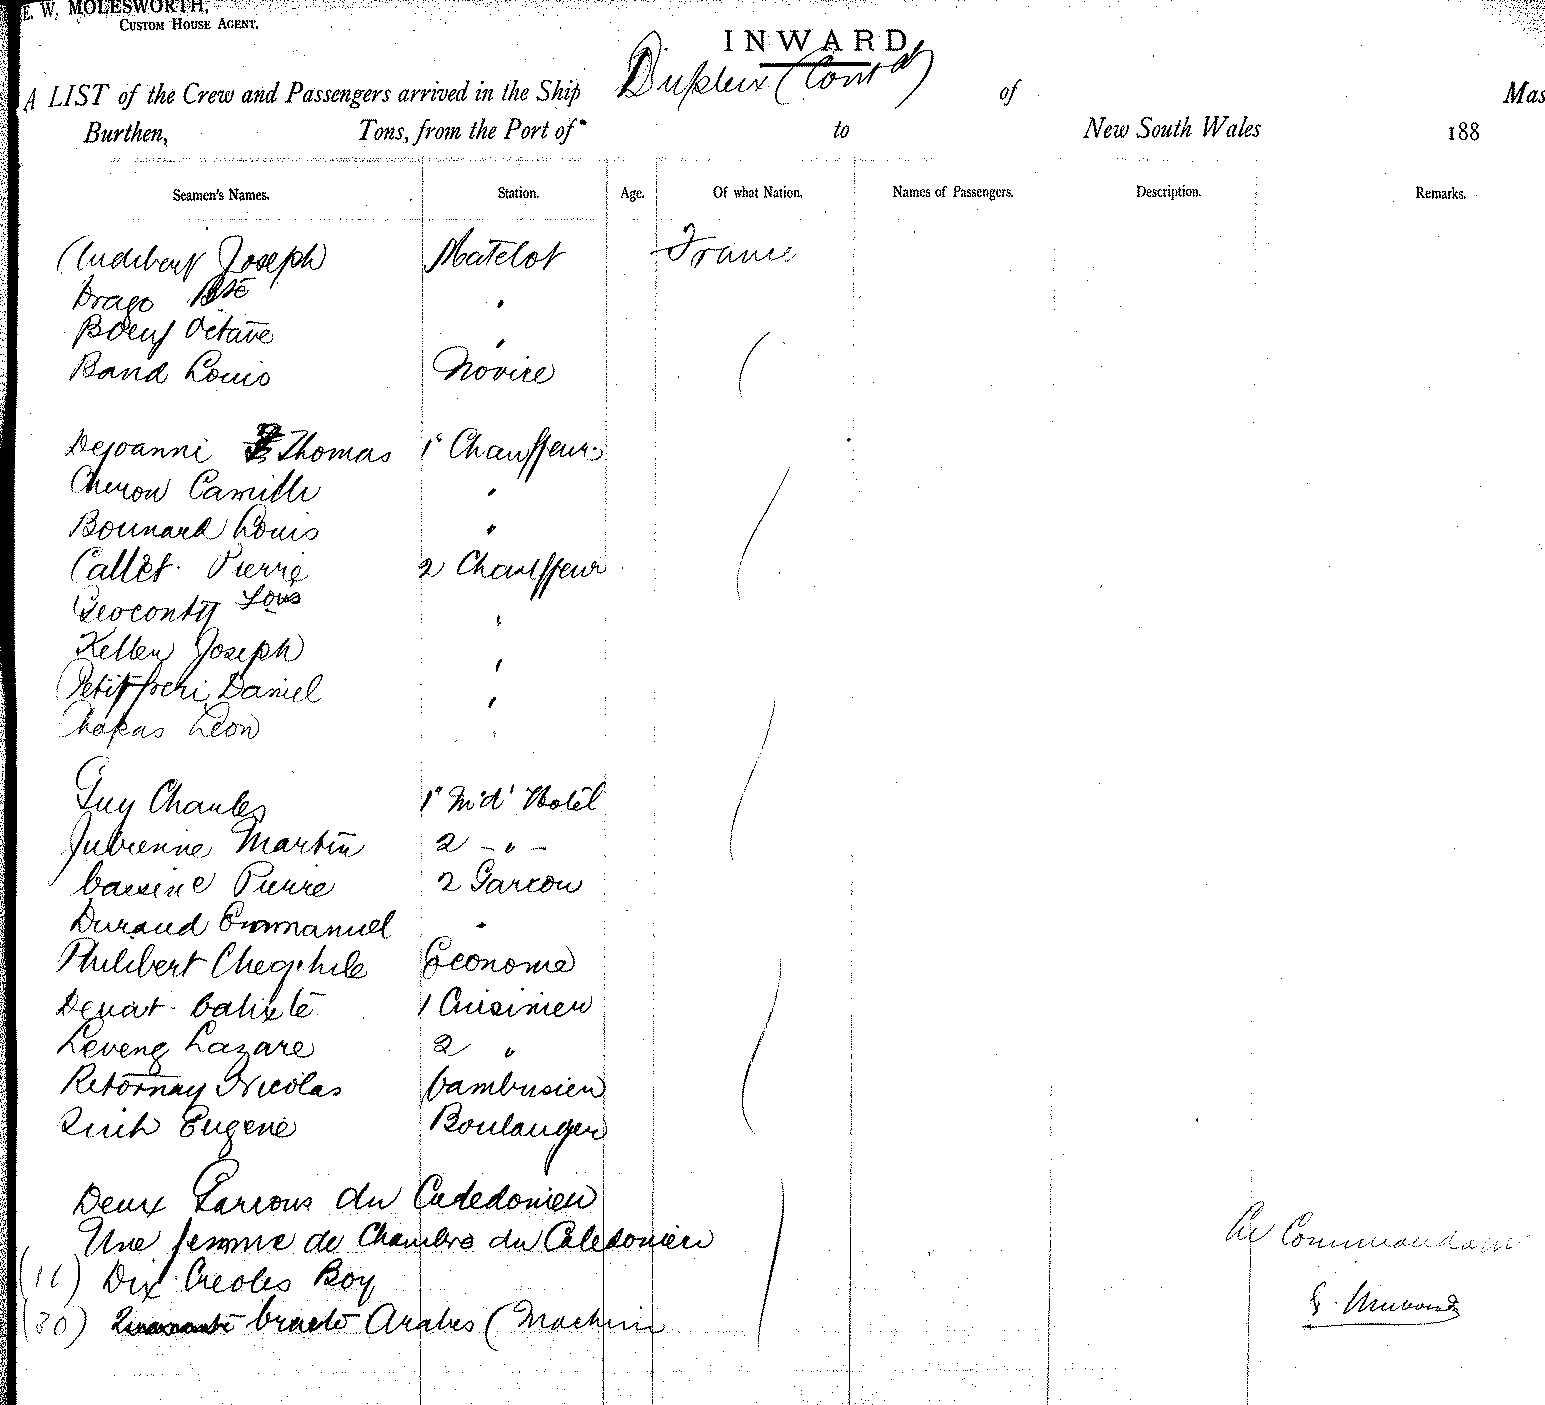 E. W. MOLESWORTH,
CUSTOM HOUSE AGENT.
INWARD
A LIST of the Crew and Passengers arrived in the Ship Dupleix (Contd) of Mas
Burthen, Tons, from the Port of to New South Wales 188
Seamen's Names. Station. Age. Of what Nation. Names of Passengers. Description. Remarks.
Audibert Joseph Matelot France
Drago Bte "
Boeuf Octave "
Band Louis Novice
Dejoanni Thomas 1r Chauffeur
Cheron Camille "
Bonnard Louis "
Callet Pierre 2 Chauffeur
Louis "
Keller Joseph "
Petitfrere Daniel "
Léon "
Guy Charles 1r M'd' Hotel
Julienne Martin 2 - " -
Pierre 2 Garcon
Durand Emmanuel "
Philibert Econome
Calixte 1 Cuisinier
Lazare 2 "
Retornay Nicolas Cambusier
Eugene Boulanger
Deux Garcons du Caledonien
Une femme de Chambre du Caledonien
Le Commandant
(10) Dix Creoles Boy
(30) Trente Arabes (Machine